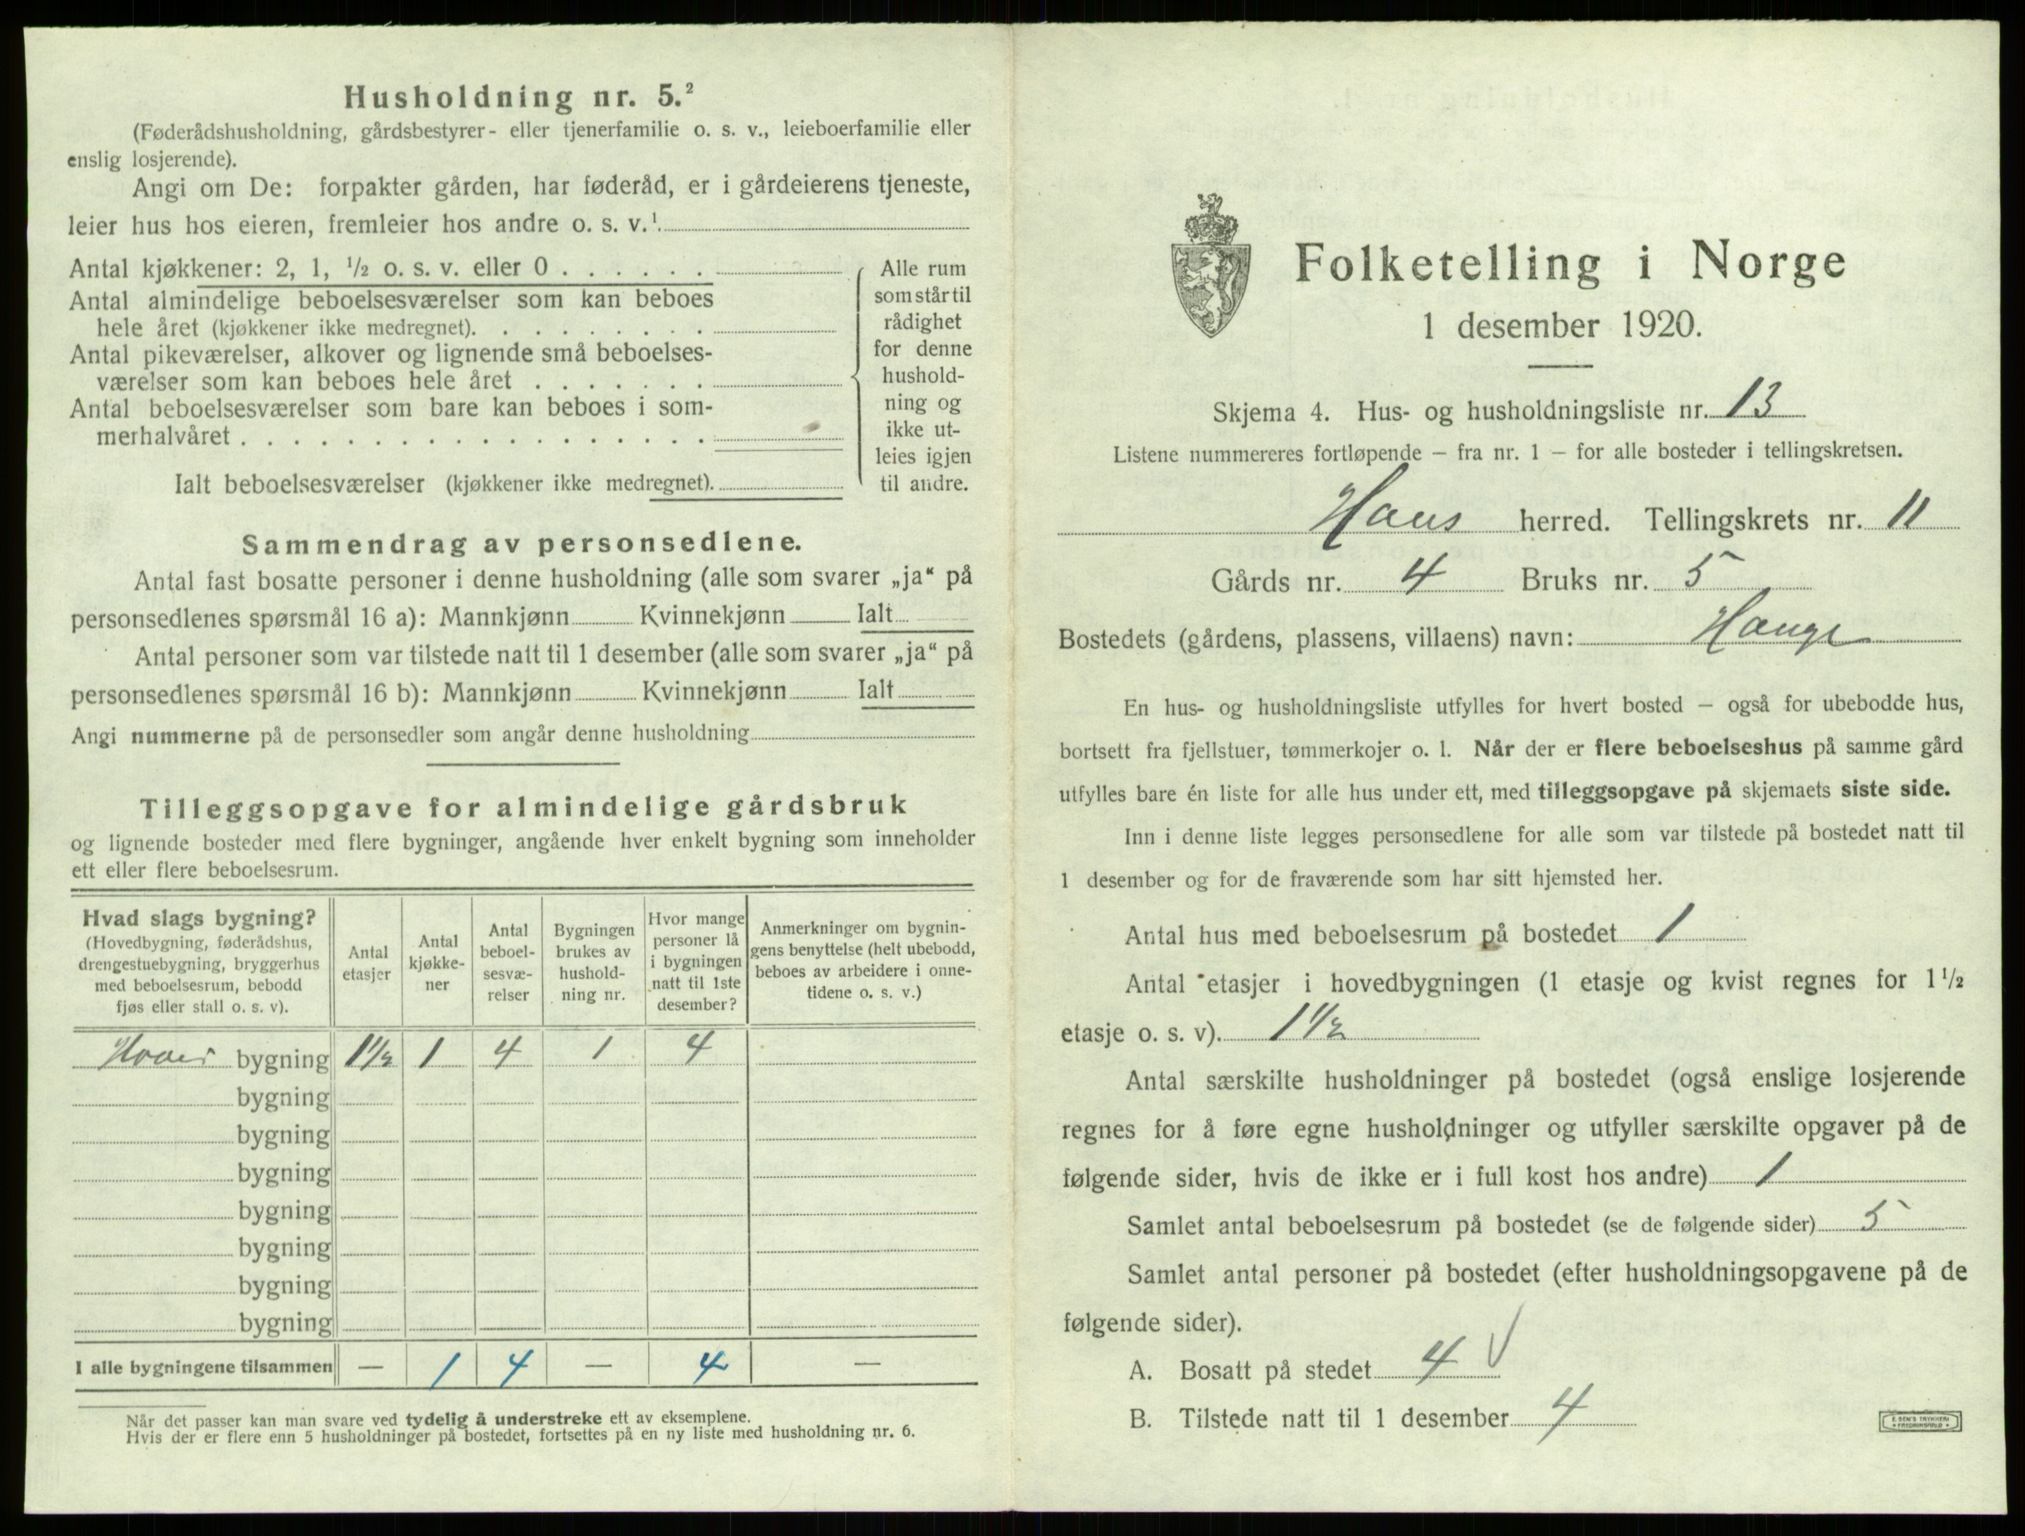 Husholdning nr. 5.²
(Føderådshusholdning, gårdsbestyrer- eller tjenerfamilie o. s. v., leieboerfamilie eller
enslig losjerende).
Angi om De: forpakter gården, har føderåd, er i gårdeierens tjeneste,
leier hus hos eieren, fremleier hos andre o. s. v.¹
Antal kjøkkener: 2, 1, ½ o. s. v. eller 0 . . . . . .
Antal almindelige beboelsesværelser som kan beboes
hele året (kjøkkener ikke medregnet). . . . . . . . .
Antal pikeværelser, alkover og lignende små beboelses-
værelser som kan beboes hele året . . . . . . .
Antal beboelsesværelser som bare kan beboes i som-
merhalvåret . . . . . . . . . . . . . . . . . .
Ialt beboelsesværelser (kjøkkener ikke medregnet).
Alle rum
som står til
rådighet
for denne
hushold-
ning og
ikke ut-
leies igjen
til andre.
Sammendrag av personsedlene.
Antal fast bosatte personer i denne husholdning (alle som svarer „ja“ på
personsedlenes spørsmål 16 a): Mannkjønn Kvinnekjønn Ialt
Antal personer som var tilstede natt til 1 desember (alle som svarer „ja“ på
personsedlenes spørsmål 16 b): Mannkjønn Kvinnekjønn Ialt
Angi nummerne på de personsedler som angår denne husholdning
Tilleggsopgave for almindelige gårdsbruk
og lignende bosteder med flere bygninger, angående hver enkelt bygning som inneholder
ett eller flere beboelsesrum.
Hvad slags bygning?
(Hovedbygning, føderådshus,
drengestuebygning, bryggerhus
med beboelsesrum, bebodd
fjøs eller stall o. s. v).
Antal
etasjer
Antal
kjøkke-
ner
Antal
beboel-
sesvæ-
relser
Bygningen
brukes av
hushold-
ning nr.
Hvor mange
personer lå
i bygningen
natt til 1ste
desember?
Anmerkninger om bygnin-
gens benyttelse (helt ubebodd,
beboes av arbeidere i onne-
tidene o. s. v.)
bygning 1½ 1 4 1 4
bygning
bygning
bygning
bygning
bygning
bygning
bygning
I alle bygningene tilsammen — 1 4 — 4 —
Når det passer kan man svare ved tydelig å understreke ett av eksemplene.
Hvis der er flere enn 5 husholdninger på bostedet, fortsettes på en ny liste med husholdning nr. 6.
Folketelling i Norge
1 desember 1920.
Skjema 4. Hus- og husholdningsliste nr. 13
Listene nummereres fortløpende – fra nr. 1 – for alle bosteder i tellingskretsen.
Haus herred. Tellingskrets nr. 11
Gårds nr. 4 Bruks nr. 5
Bostedets (gårdens, plassens, villaens) navn: Hauge
En hus- og husholdningsliste utfylles for hvert bosted – også for ubebodde hus,
bortsett fra fjellstuer, tømmerkojer o. l. Når der er flere beboelseshus på samme gård
utfylles bare én liste for alle hus under ett, med tilleggsopgave på skjemaets siste side.
Inn i denne liste legges personsedlene for alle som var tilstede på bostedet natt til
1 desember og for de fraværende som har sitt hjemsted her.
Antal hus med beboelsesrum på bostedet 1
Antal etasjer i hovedbygningen (1 etasje og kvist regnes for 1 ½
etasje o. s. v). 1½
Antal særskilte husholdninger på bostedet (også enslige losjerende
regnes for å føre egne husholdninger og utfyller særskilte opgaver på de
følgende sider, hvis de ikke er i full kost hos andre) 1
Samlet antal beboelsesrum på bostedet (se de følgende sider) 5
Samlet antal personer på bostedet (efter husholdningsopgavene på de
følgende sider).
A. Bosatt på stedet 4 √
B. Tilstede natt til 1 desember 4